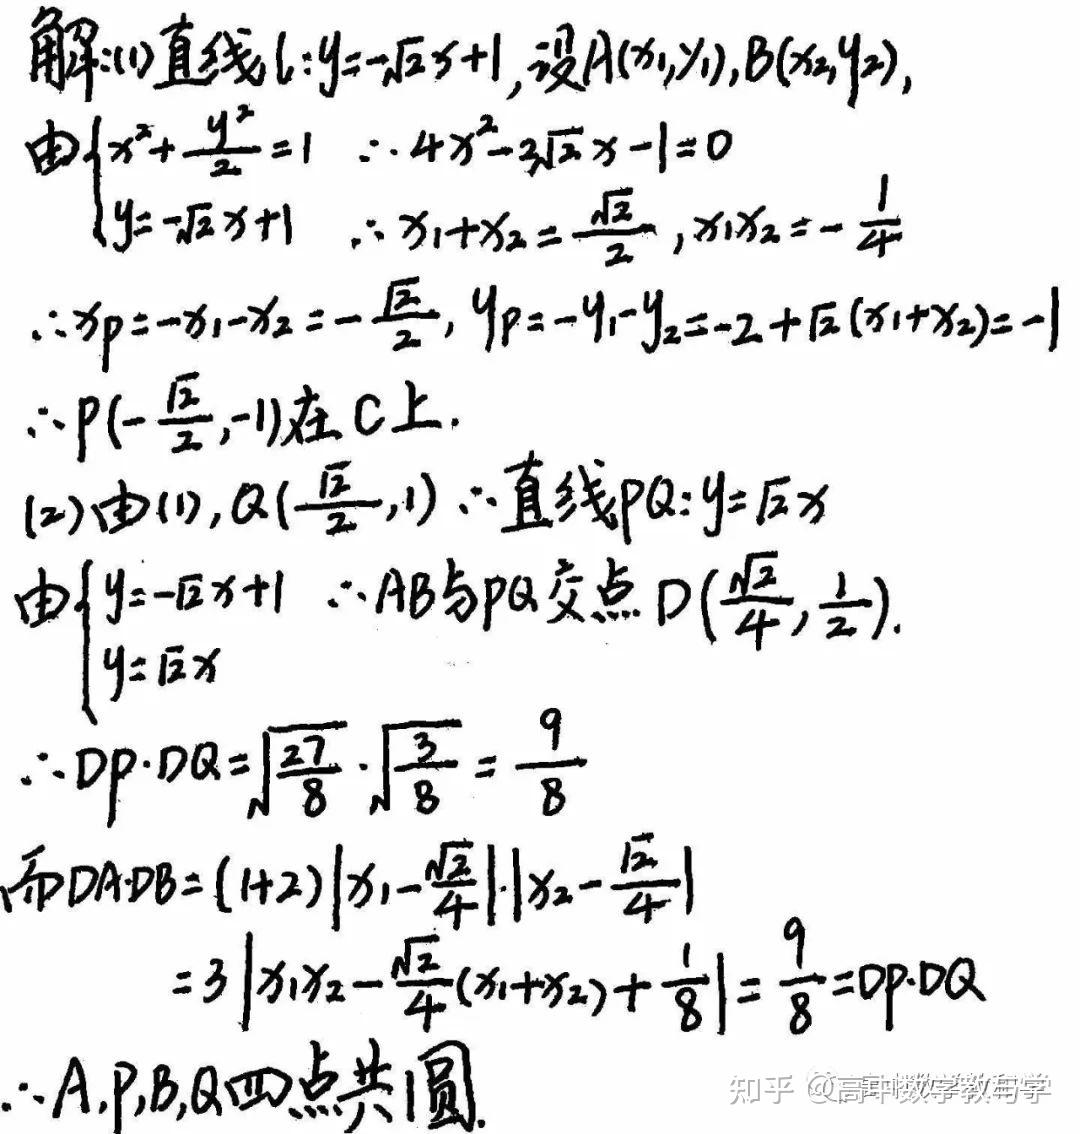 解:(1)直线l:y=-√2x+1,设A(x₁,y₁),B(x₂,y₂),
由{x²+y²/2=1 ∴4x²-2√2x-1=0
y=-√2x+1 ∴x₁+x₂=√2/2,x₁x₂=-1/4
∴xₚ=-x₁-x₂=-√2/2,yₚ=-y₁-y₂=-2+√2(x₁+x₂)=-1
∴P(-√2/2,-1)在C上.
(2)由(1),Q(√2/2,1)∴直线PQ:y=√2x
由{y=-√2x+1 ∴AB与PQ交点D(√2/4,1/2).
y=√2x
∴DP·DQ=√(27/8)·√(3/8)=9/8
而DA·DB=(1+2)|x₁-√2/4|·|x₂-√2/4|
=3|x₁x₂-√2/4(x₁+x₂)+1/8|=9/8=DP·DQ
∴A,P,B,Q四点共圆.
知乎 @高中数学教与学